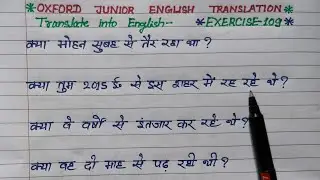 *OXFORD JUNIOR ENGLISH TRANSLATION*
Translate into English-- *EXERCISE-109*
क्या मोहन सुबह से तैर रहा था ?
क्या तुम 2015 ई० से इस शहर में रह रहे थे ?
क्या वे वर्षों से इंतजार कर रहे थे ?
क्या वह दो माह से पढ़ रही थी ?